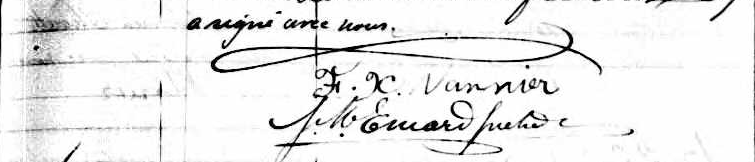 a signé avec nous.
F. X. Vannier
J. M. Emard ptre